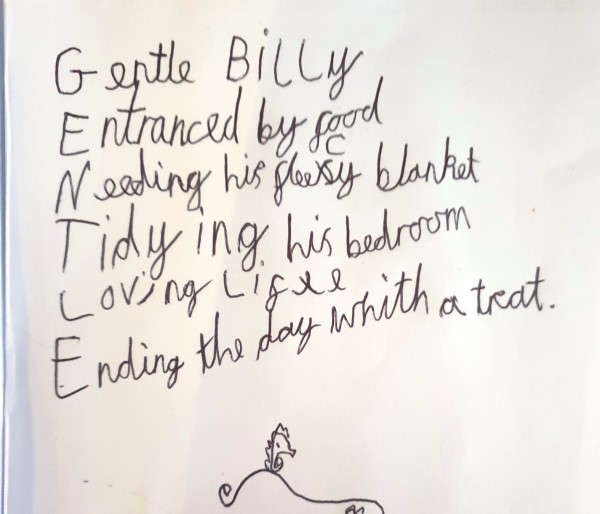 Gentle Billy
Entranced by food
Needing his fleecy blanket
Tidying his bedroom
Loving Lifee
Ending the day whith a treat.